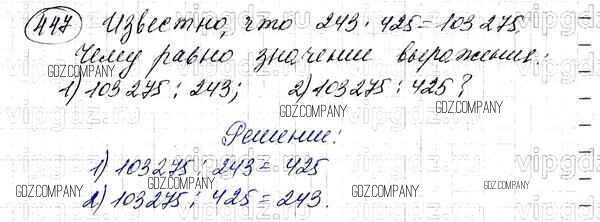 447 Известно, что 243 · 425 = 103 275.
Чему равно значение выражения:
1) 103 275 : 243; 2) 103 275 : 425?
Решение:
1) 103 275 : 243 = 425
2) 103 275 : 425 = 243.
GDZ.COMPANY
GDZ.COMPANY
GDZ.COMPANY
GDZ.COMPANY
GDZ.COMPANY
GDZ.COMPANY
vipgdz
vipgdz
vipgdz